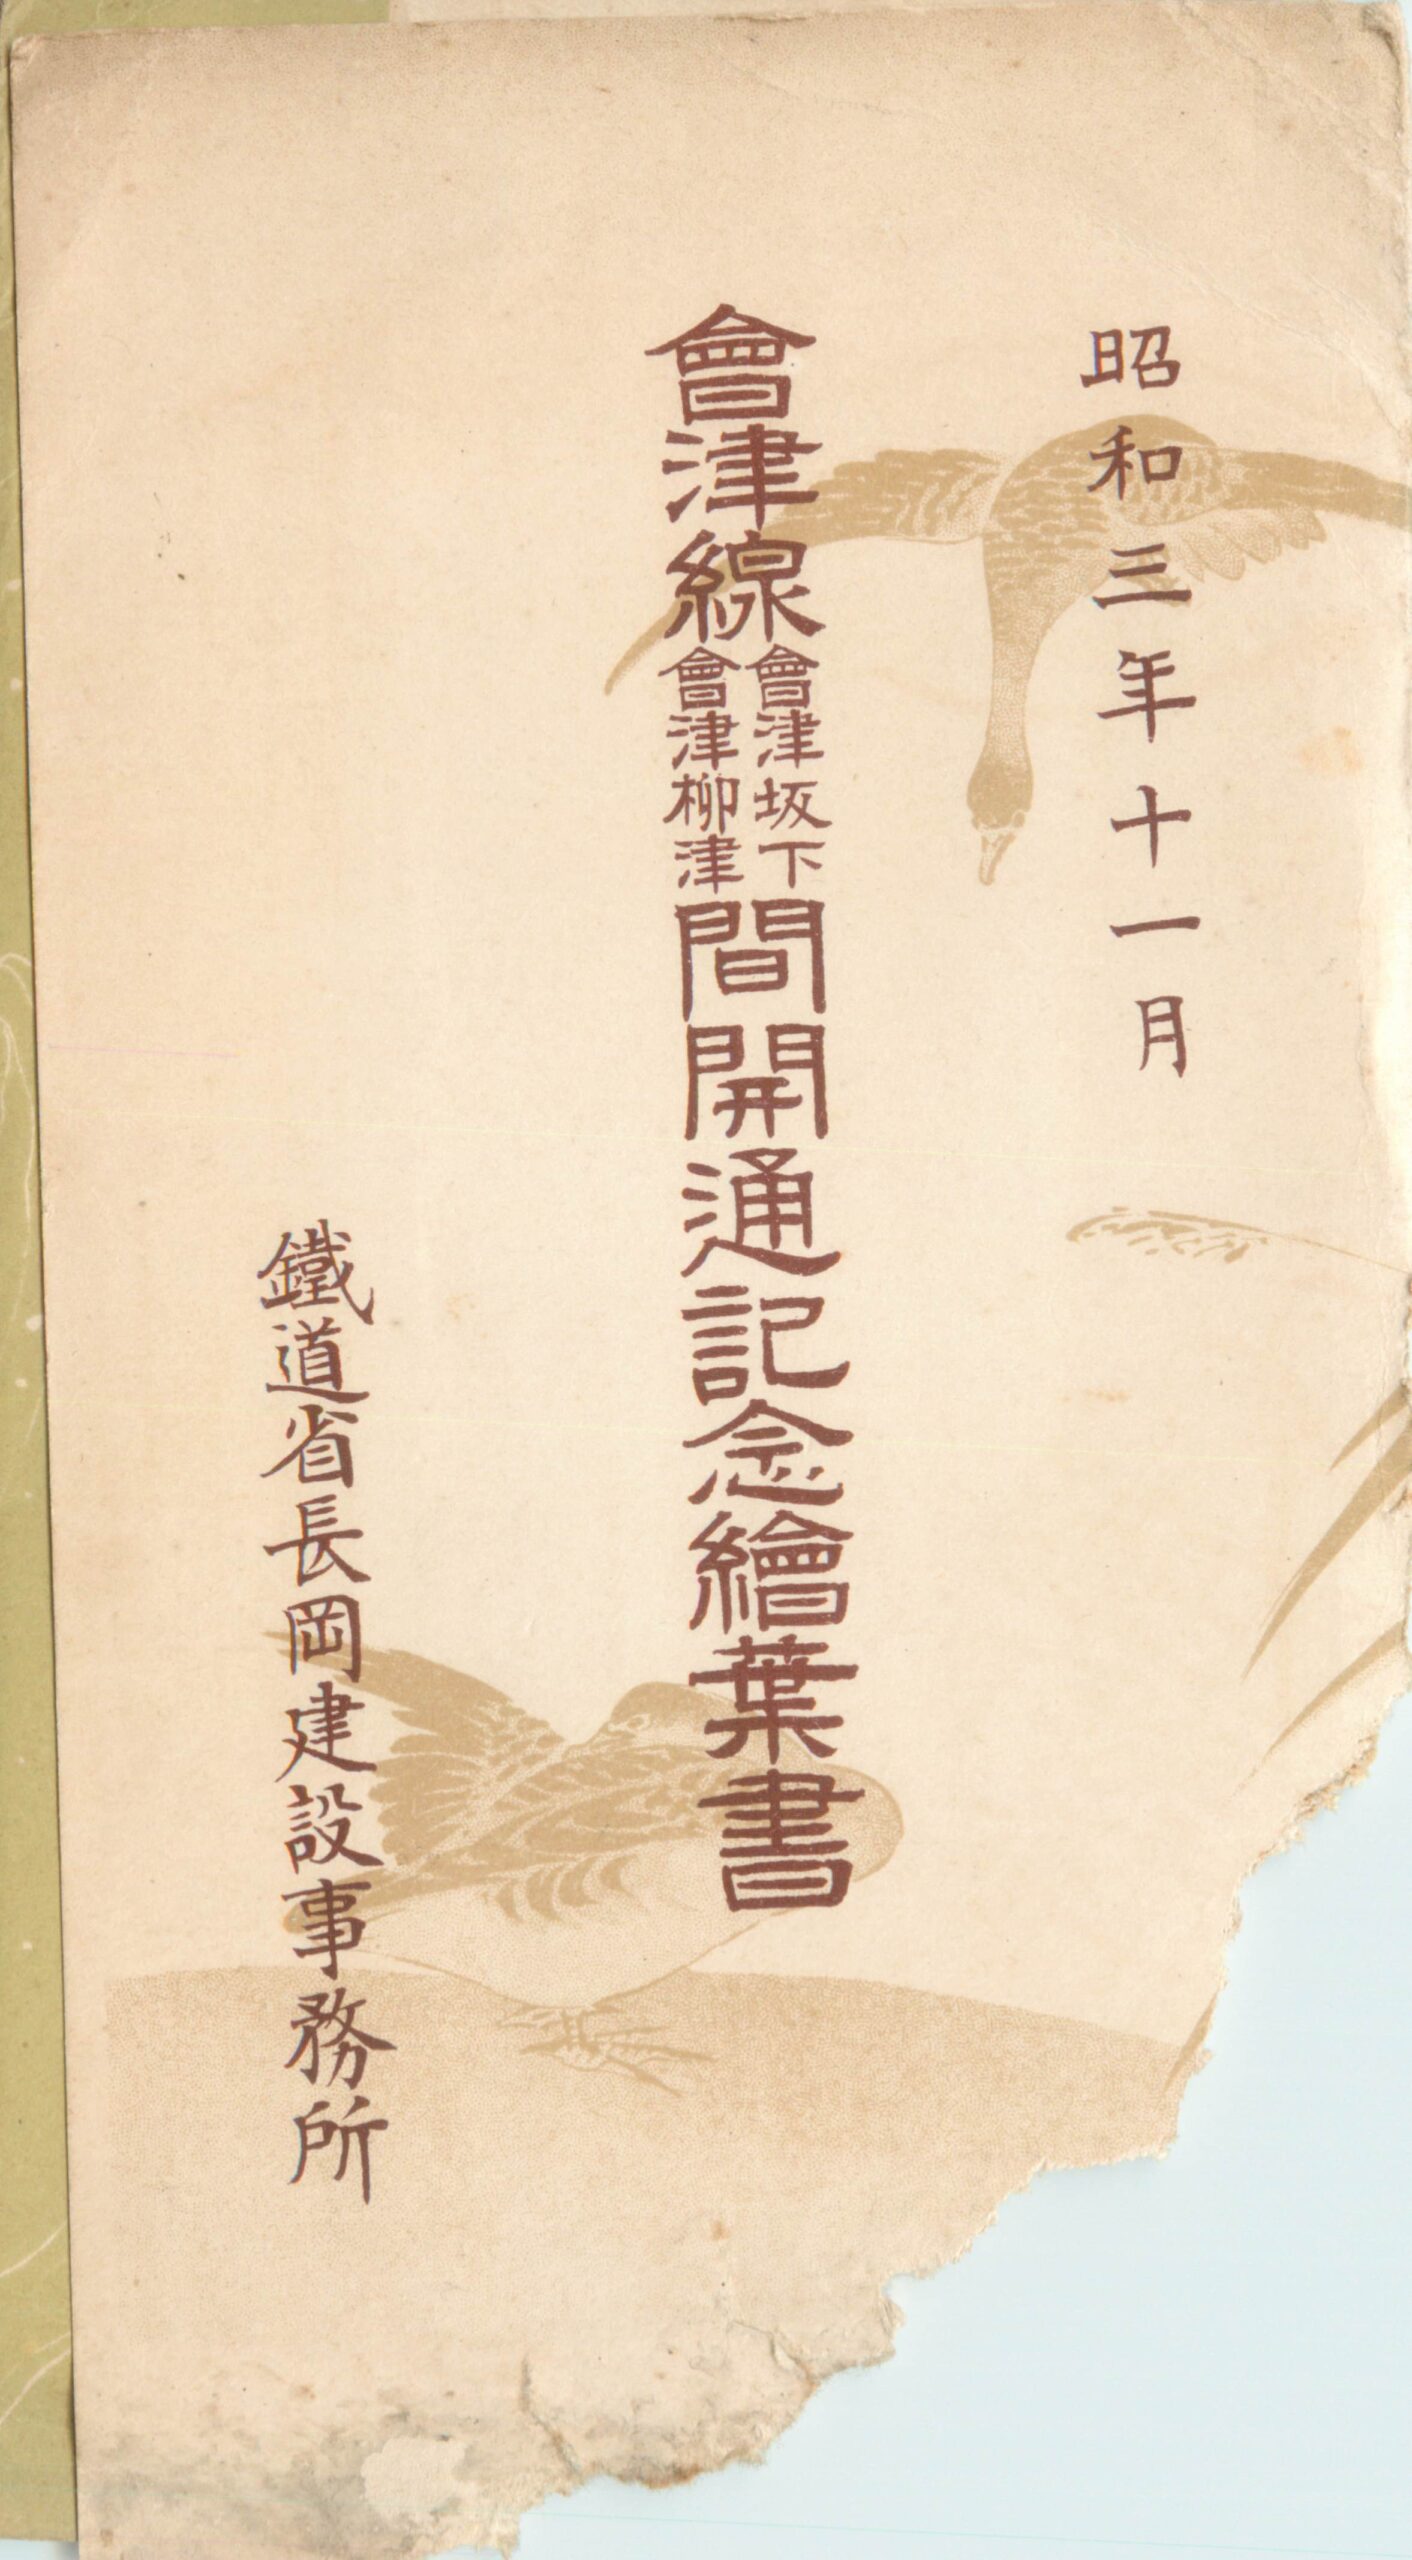 昭和三年十一月
會津線會津坂下會津柳津間開通記念繪葉書
鐵道省長岡建設事務所